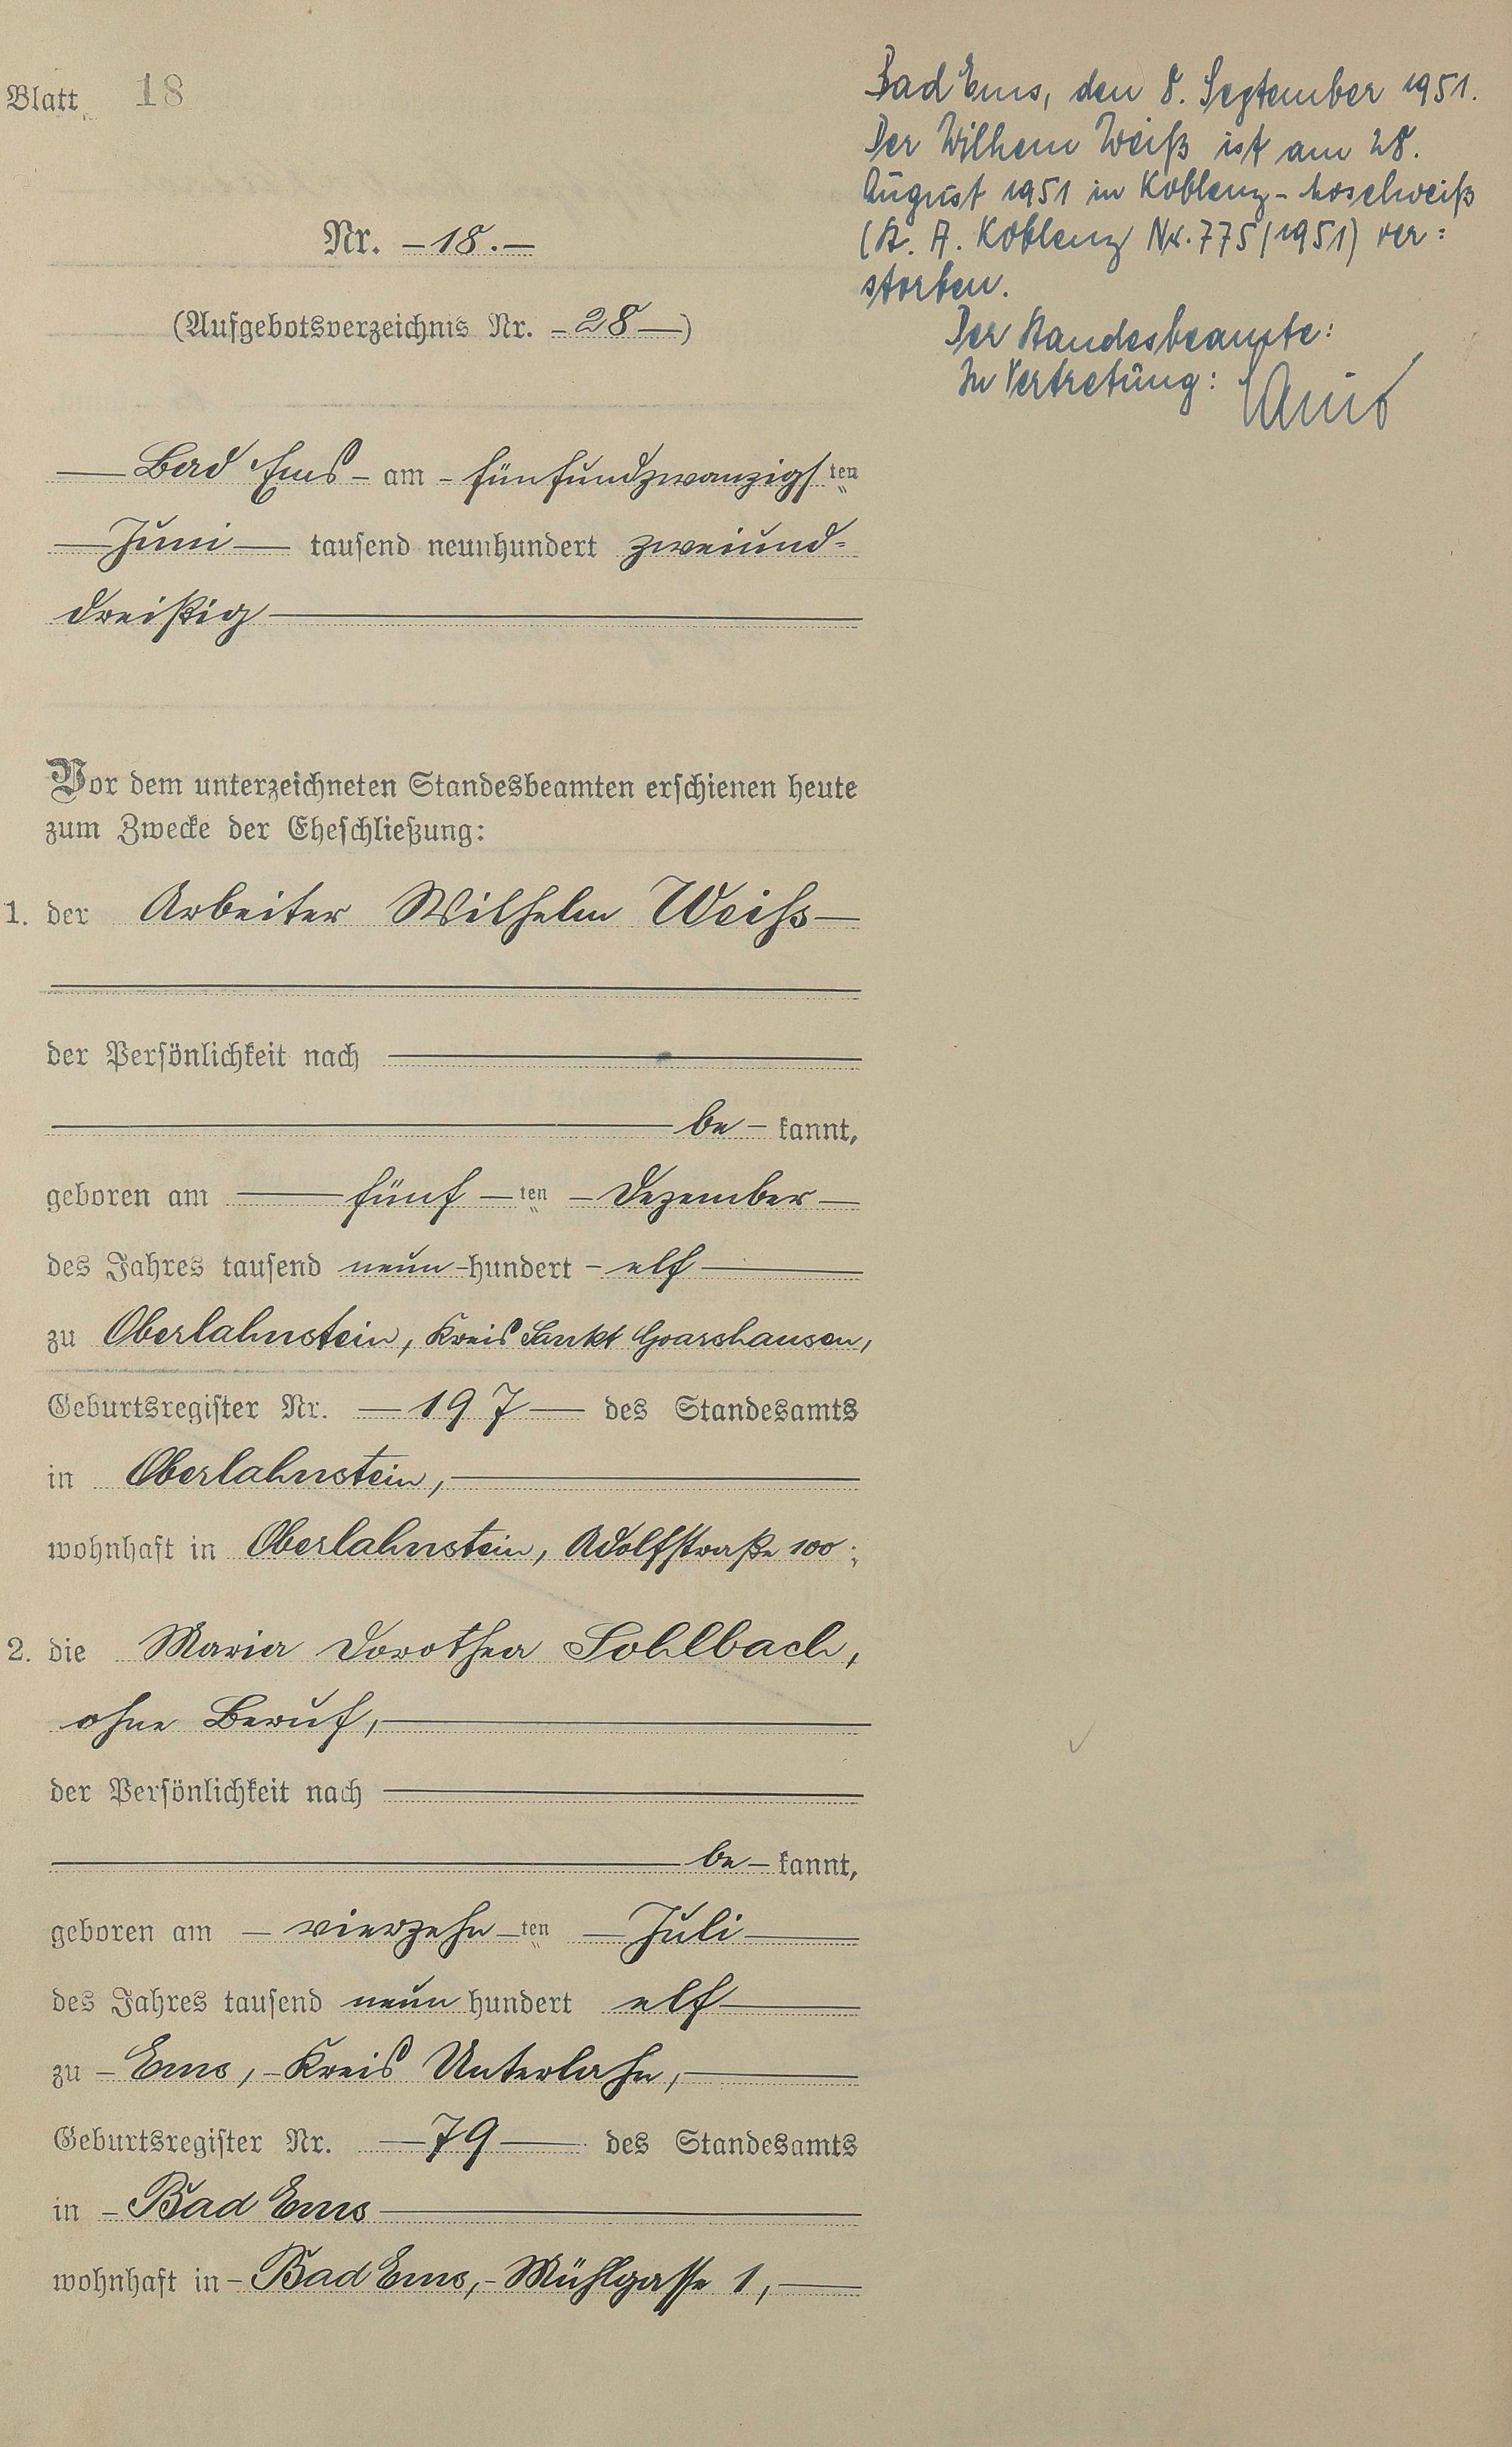 Blatt 18
Nr. – 18. –
(Aufgebotsverzeichnis Nr. – 28 –)
Bad Ems – am – fünfundzwanzigsten
Juni – tausend neunhundert zweiund-
dreißig
Vor dem unterzeichneten Standesbeamten erschienen heute
zum Zwecke der Eheschließung:
1. der Arbeiter Wilhelm Weiss –
der Persönlichkeit nach
be – kannt,
geboren am fünf – ten – Dezember –
des Jahres tausend neun – hundert – elf
zu Oberlahnstein, Kreis Sankt Goarshausen,
Geburtsregister Nr. – 197 – des Standesamts
in Oberlahnstein,
wohnhaft in Oberlahnstein, Adolfstraße 100;
2. die Maria Dorothea Sohlbach,
ohne Beruf,
der Persönlichkeit nach
be – kannt,
geboren am – vierzehn – ten – Juli
des Jahres tausend neun hundert elf
zu – Ems, – Kreis Unterlahn,
Geburtsregister Nr. – 79 – des Standesamts
in – Bad Ems
wohnhaft in – Bad Ems, – Mühlgasse 1,
Bad Ems, den 8. September 1951.
Der Wilhem Weiß ist am 28.
August 1951 in Koblenz-Moselweiß
(St. A. Koblenz Nr. 775/1951) ver=
storben.
Der Standesbeamte:
In Vertretung: